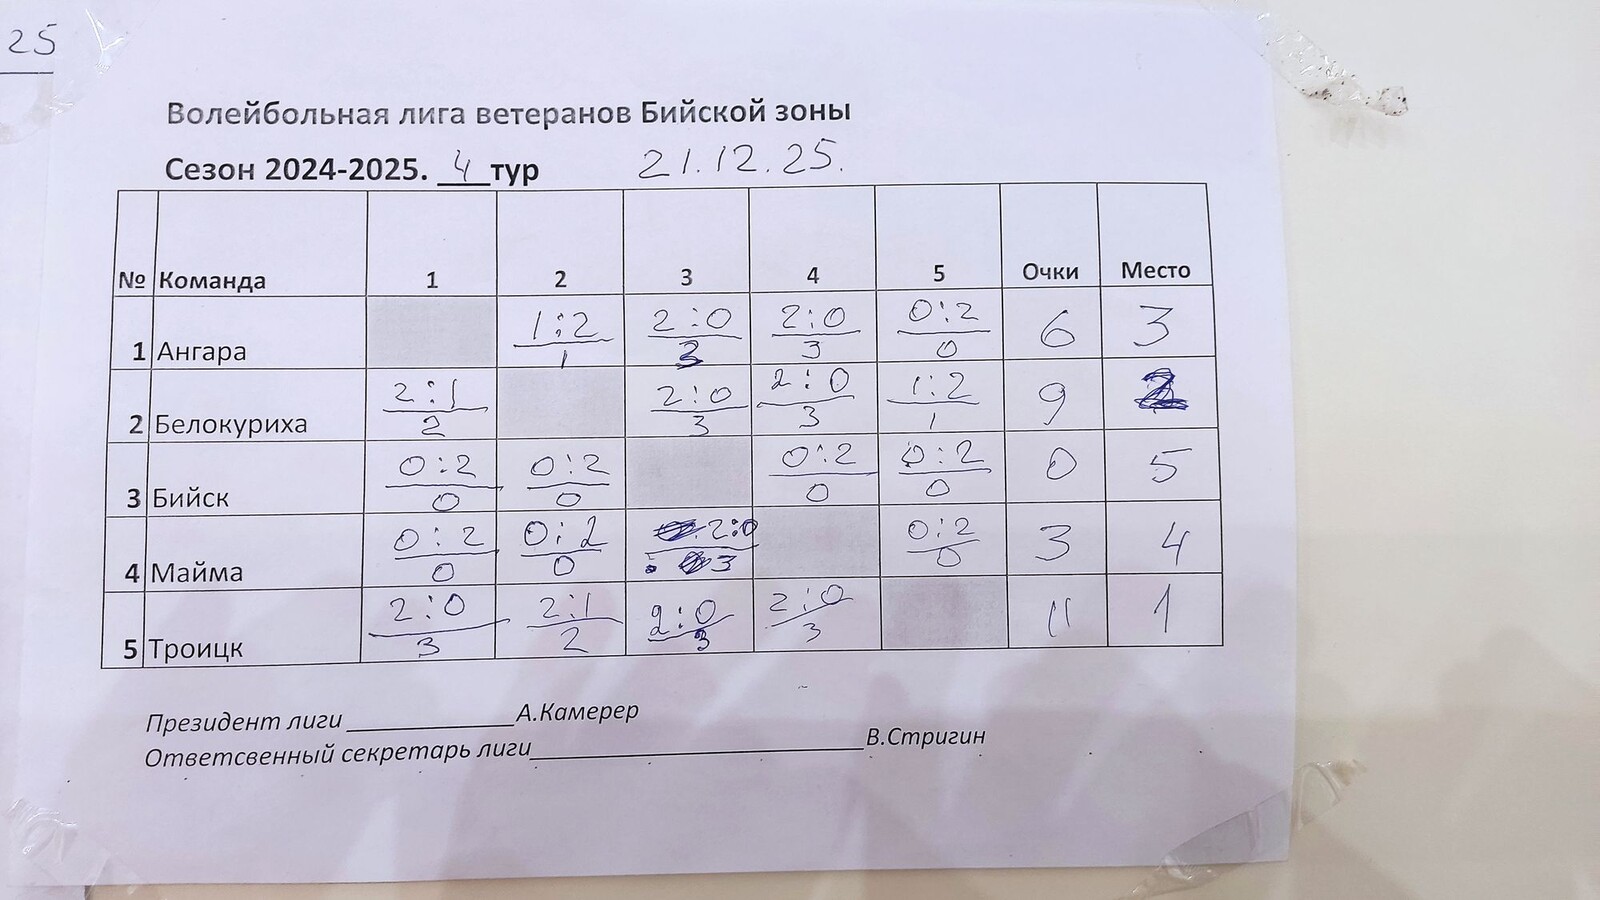 25
Волейбольная лига ветеранов Бийской зоны
Сезон 2024-2025. 4 тур 21.12.25.
№ Команда 1 2 3 4 5 Очки Место
1 Ангара 1:2 2:0 2:0 0:2 6 3
1 3 3 0
2 Белокуриха 2:1 2:0 2:0 1:2 9 2
2 3 3 1
3 Бийск 0:2 0:2 0:2 0:2 0 5
0 0 0 0
4 Майма 0:2 0:2 2:0 0:2 3 4
0 0 3 0
5 Троицк 2:0 2:1 2:0 2:0 11 1
3 2 3 3
Президент лиги ____________А.Камерер
Ответсвенный секретарь лиги________________________В.Стригин